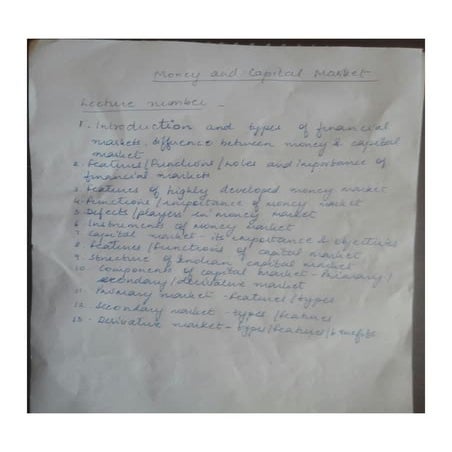 Money and Capital Market
Lecture number -
1. Introduction and types of financial
markets, difference between money & capital
market -
2. Features/Functions/roles and importance of
financial markets
3. Features of highly developed money market
4. Functions/importance of money market
5. Defects/players in money market
6. Instruments of money market
7. Capital market - its importance & objectives
8. Features/functions of capital market
9. Structure of Indian capital market
10. Components of capital market - Primary/
secondary/derivative market
11. Primary market - features/types
12. Secondary market - types/features
13. Derivative market - types/features/benefits